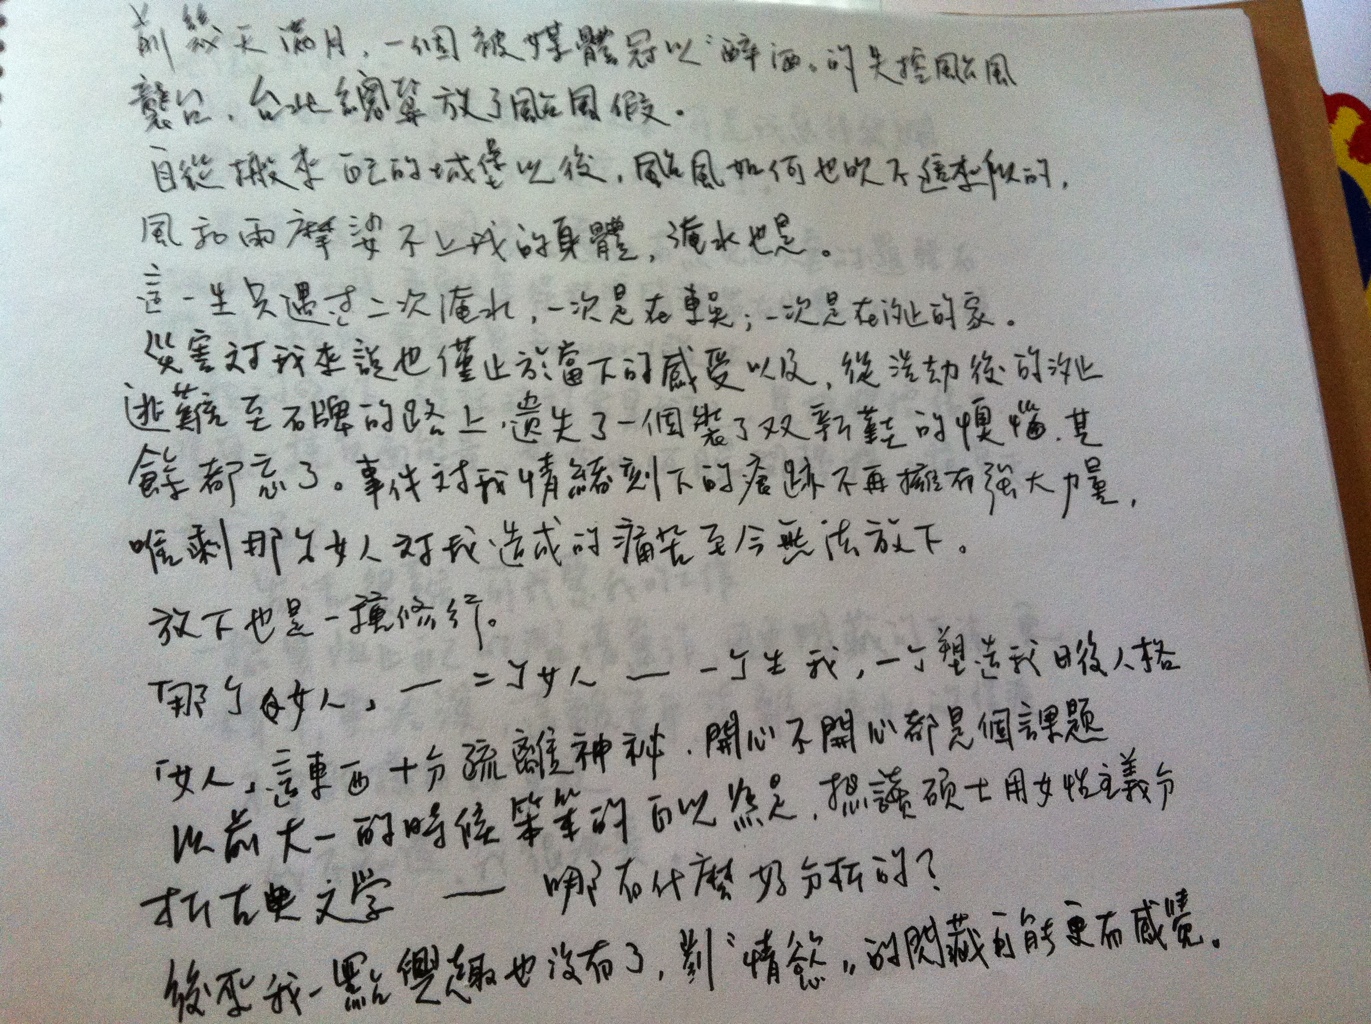 前幾天滿月，一個被媒體冠以“醉酒”的失控颱風
襲台，台北總算放了颱風假。
自從搬來自己的城堡以後，颱風如何也吹不進來似的，
風和雨摩娑不上我的身體，淹水也是。
這一生只遇過二次淹水，一次是在東吳；一次是在汐止的家。
災害對我來說也僅止於當下的感受以及，從浩劫後的汐止
逃難至石牌的路上，遺失了一個裝了双新鞋的懊惱，其
餘都忘了。事件對我情緒刻下的痕跡不再擁有強大力量，
唯剩那个女人對我造成的痛苦至今無法放下。
放下也是一種修行。
「那个女人」—二个女人—一个生我，一个塑造我日後人格
「女人」這東西十分疏離神祕，開心不開心都是個課題
以前大一的時候笨笨的自以為是，想讀碩士用女性主義分
析古典文学 — 哪有什麼好分析的？
後來我一點興趣也沒有了，對“情慾”的閃藏可能更有感覺。